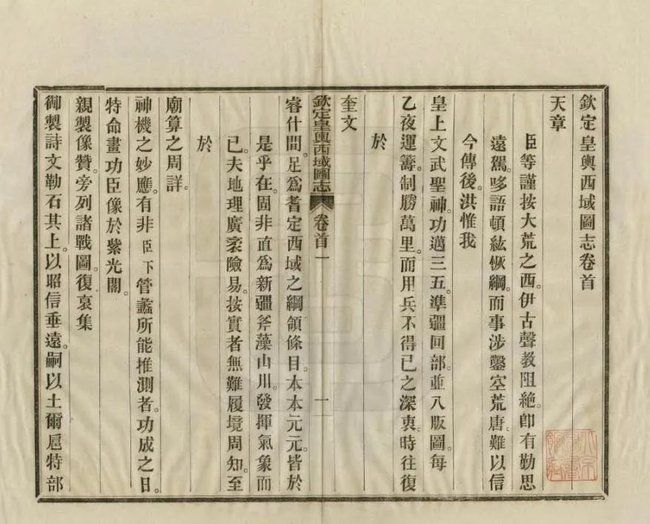 欽定皇輿西域圖志卷首
天章
臣等謹按大荒之西伊古聲教阻絕。卽有勤思
遠馭。哆語頓紘恢綱。而事涉鑿空荒唐。難以信
今傳後。洪惟我
皇上文武聖神。功邁三五。準疆回部。並入版圖。每
乙夜運籌。制勝萬里。而用兵不得已之深衷。時往復
於
奎文
欽定皇輿西域圖志 卷首一 一
睿什間。足爲耆定西域之綱領條目。本本元元。皆於
是乎在。固非直爲新疆斧藻山川。發揮氣象而
已。夫地理廣袤險易。按實者無難履境周知。至
於
廟算之周詳。
神機之妙應。有非臣下管蠡所能推測者。功成之日。
特命畫功臣像於紫光閣。
親製像贊。旁列諸戰圖。復裒集
御製詩文勒石其上。以昭信垂遠。嗣以土爾扈特部